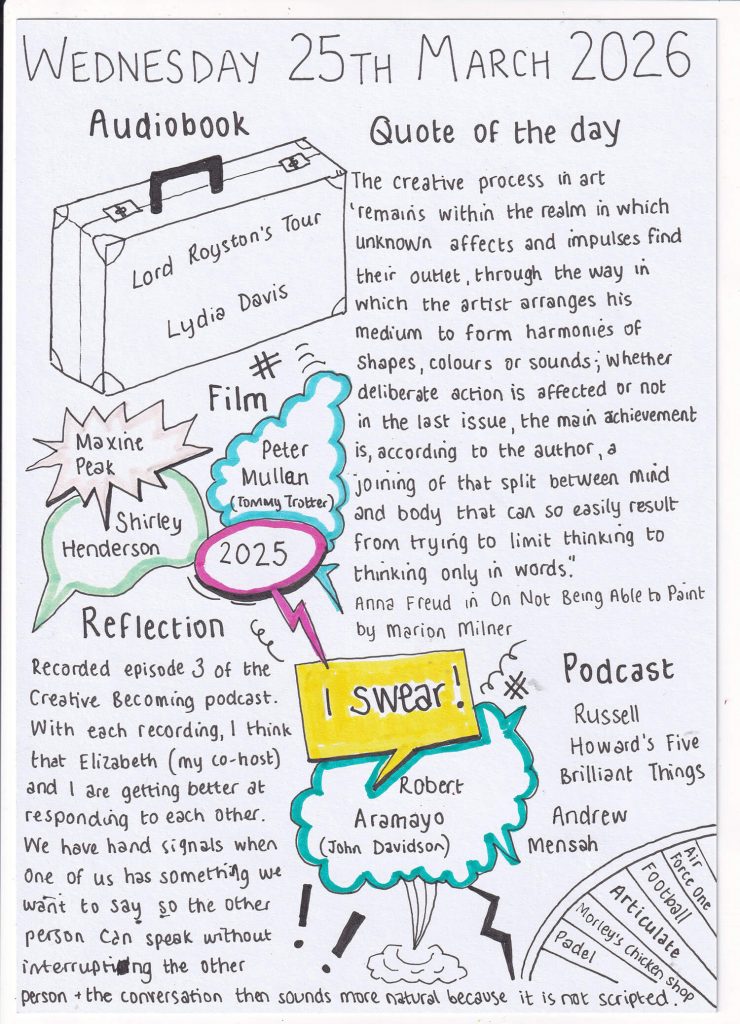 WEDNESDAY 25TH MARCH 2026
Audiobook
Lord Royston's Tour
Lydia Davis
Quote of the day
The creative process in art
'remains within the realm in which
unknown affects and impulses find
their outlet, through the way in
which the artist arranges his
medium to form harmonies of
shapes, colours or sounds; whether
deliberate action is affected or not
in the last issue, the main achievement
is, according to the author, a
joining of that split between mind
and body that can so easily result
from trying to limit thinking to
thinking only in words."
Anna Freud in On Not Being Able to Paint
by Marion Milner
#
Film
Maxine
Peak
Shirley
Henderson
Peter
Mullan
(Tommy Trotter)
2025
I swear!
#
Robert
Aramayo
(John Davidson)
! !
Reflection
Recorded episode 3 of the
Creative Becoming podcast.
With each recording, I think
that Elizabeth (my co-host)
and I are getting better at
responding to each other.
We have hand signals when
one of us has something we
want to say so the other
person can speak without
interrupting the other
person + the conversation then sounds more natural because it is not scripted.
Podcast
Russell
Howard's Five
Brilliant Things
Andrew
Mensah
Air
Force One
Football
Articulate
Morley's chicken shop
Padel